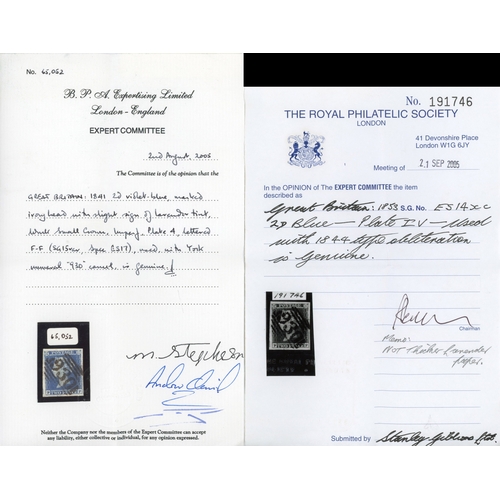 No. 65,052
B. P. A. Expertising Limited
London - England
EXPERT COMMITTEE
2nd August, 2005
The Committee is of the opinion that the
GREAT BRITAIN: 1841 2d violet-blue, marked
ivory head with slight sign of lavender tint,
Small Crown, Imperf. Plate 4, lettered
F-F (SG15 Spec ), used, with York
numeral '930' cancel, is genuine.
65,052
Neither the Company nor the members of the Expert Committee can accept
any liability, either collective or individual, for any opinion expressed.
No. 191746
THE ROYAL PHILATELIC SOCIETY
LONDON
41 Devonshire Place
London W1G 6JY
Meeting of 21 SEP 2005
In the OPINION of The EXPERT COMMITTEE the item
described as Great Britain: 1853 S.G. No. ES14xc
2d Blue - Plate IV - Used
with 1844 type obliteration
is Genuine.
191746
Chairman
Memo:
NOT Thicker Lavender
Paper.
Submitted by Stanley Gibbons Ltd.